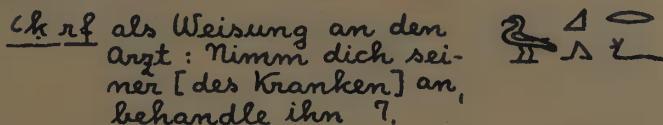 ꜥḳ rf als Weisung an den
Arzt: Nimm dich sei-
ner [des Kranken] an,
behandle ihn?.